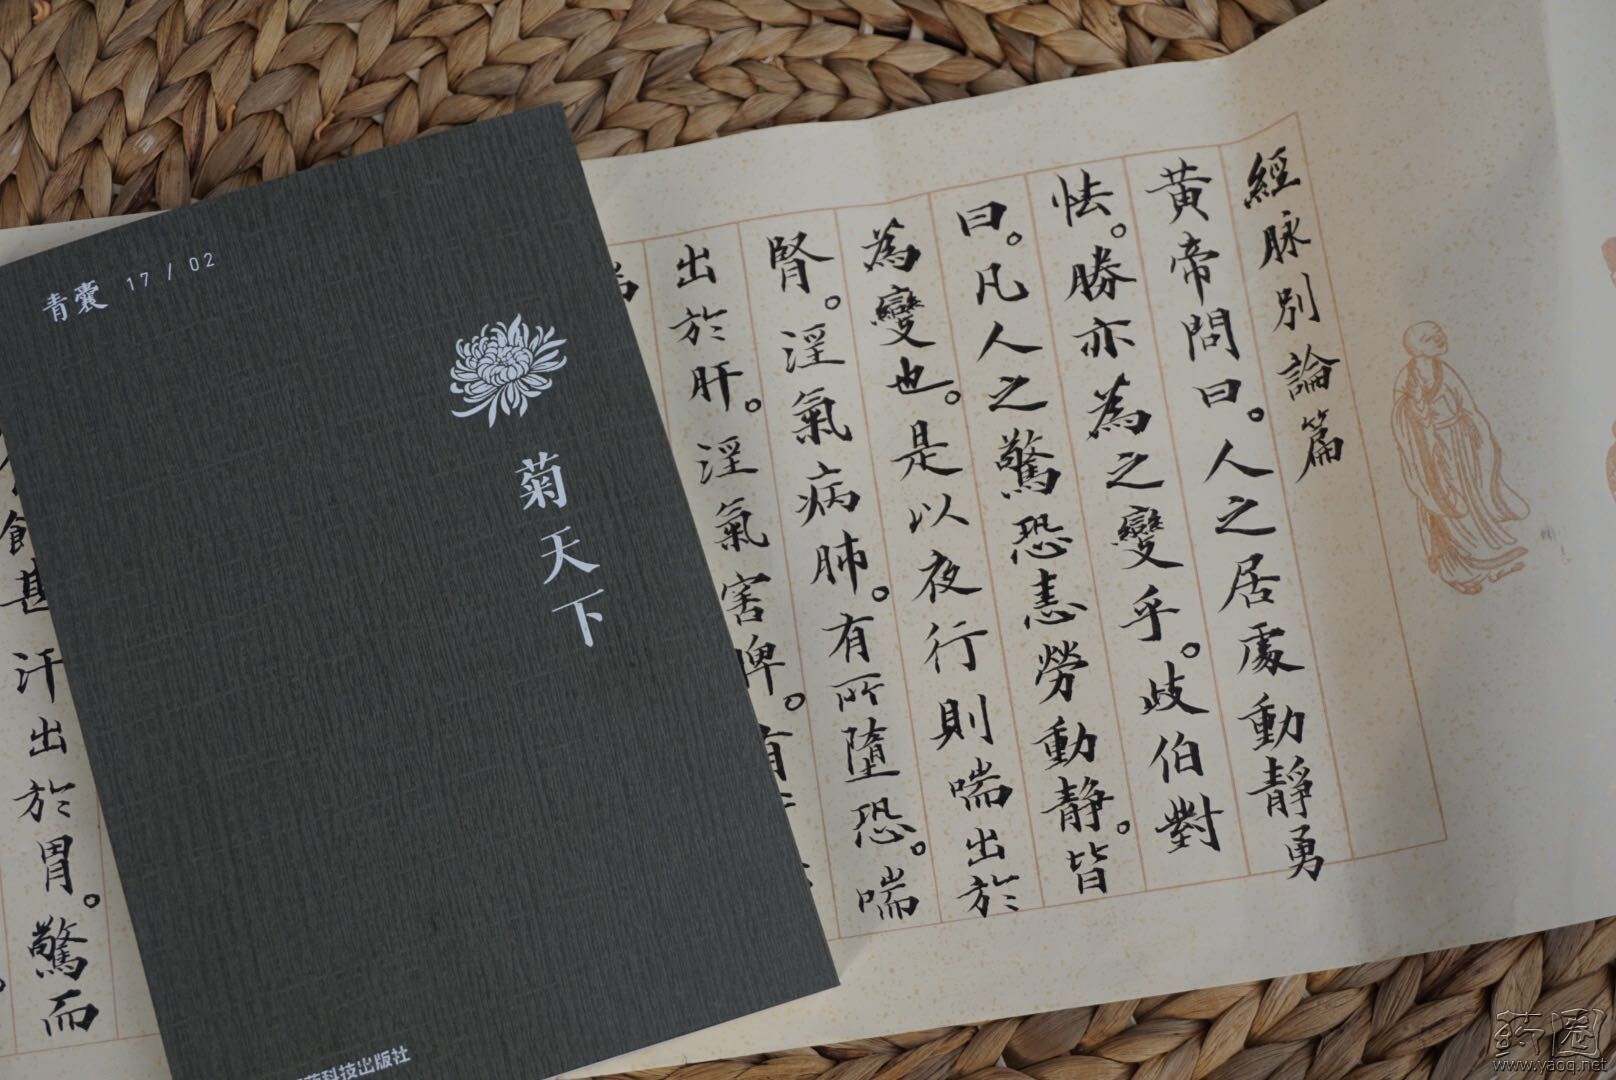 經脉別論篇
黃帝問曰。人之居處動靜勇
怯。勝亦為之變乎。歧伯對
曰。凡人之驚恐恚勞動靜。皆
為變也。是以夜行則喘出於
腎。淫氣病肺。有所墮恐。喘
出於肝。淫氣害脾。有
甚汗出於胃。驚而
青囊 17 / 02
菊天下
科技出版社
药圈
www.yaoq.net